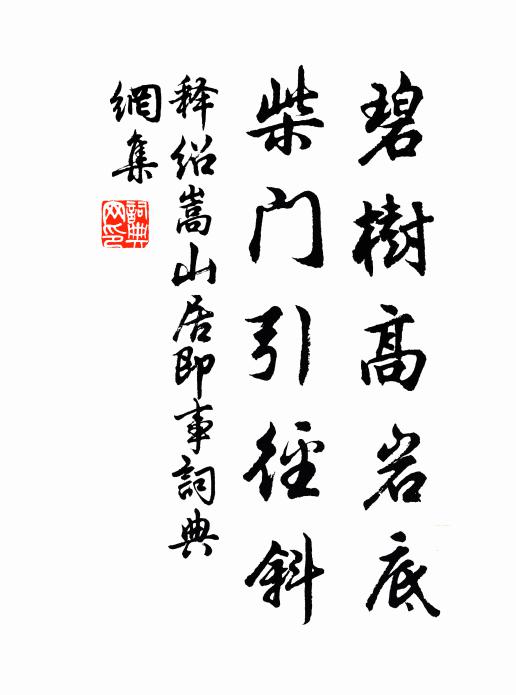 碧樹高岩底
柴門引徑斜
释绍嵩山居即事詞典
網集
詞典網印